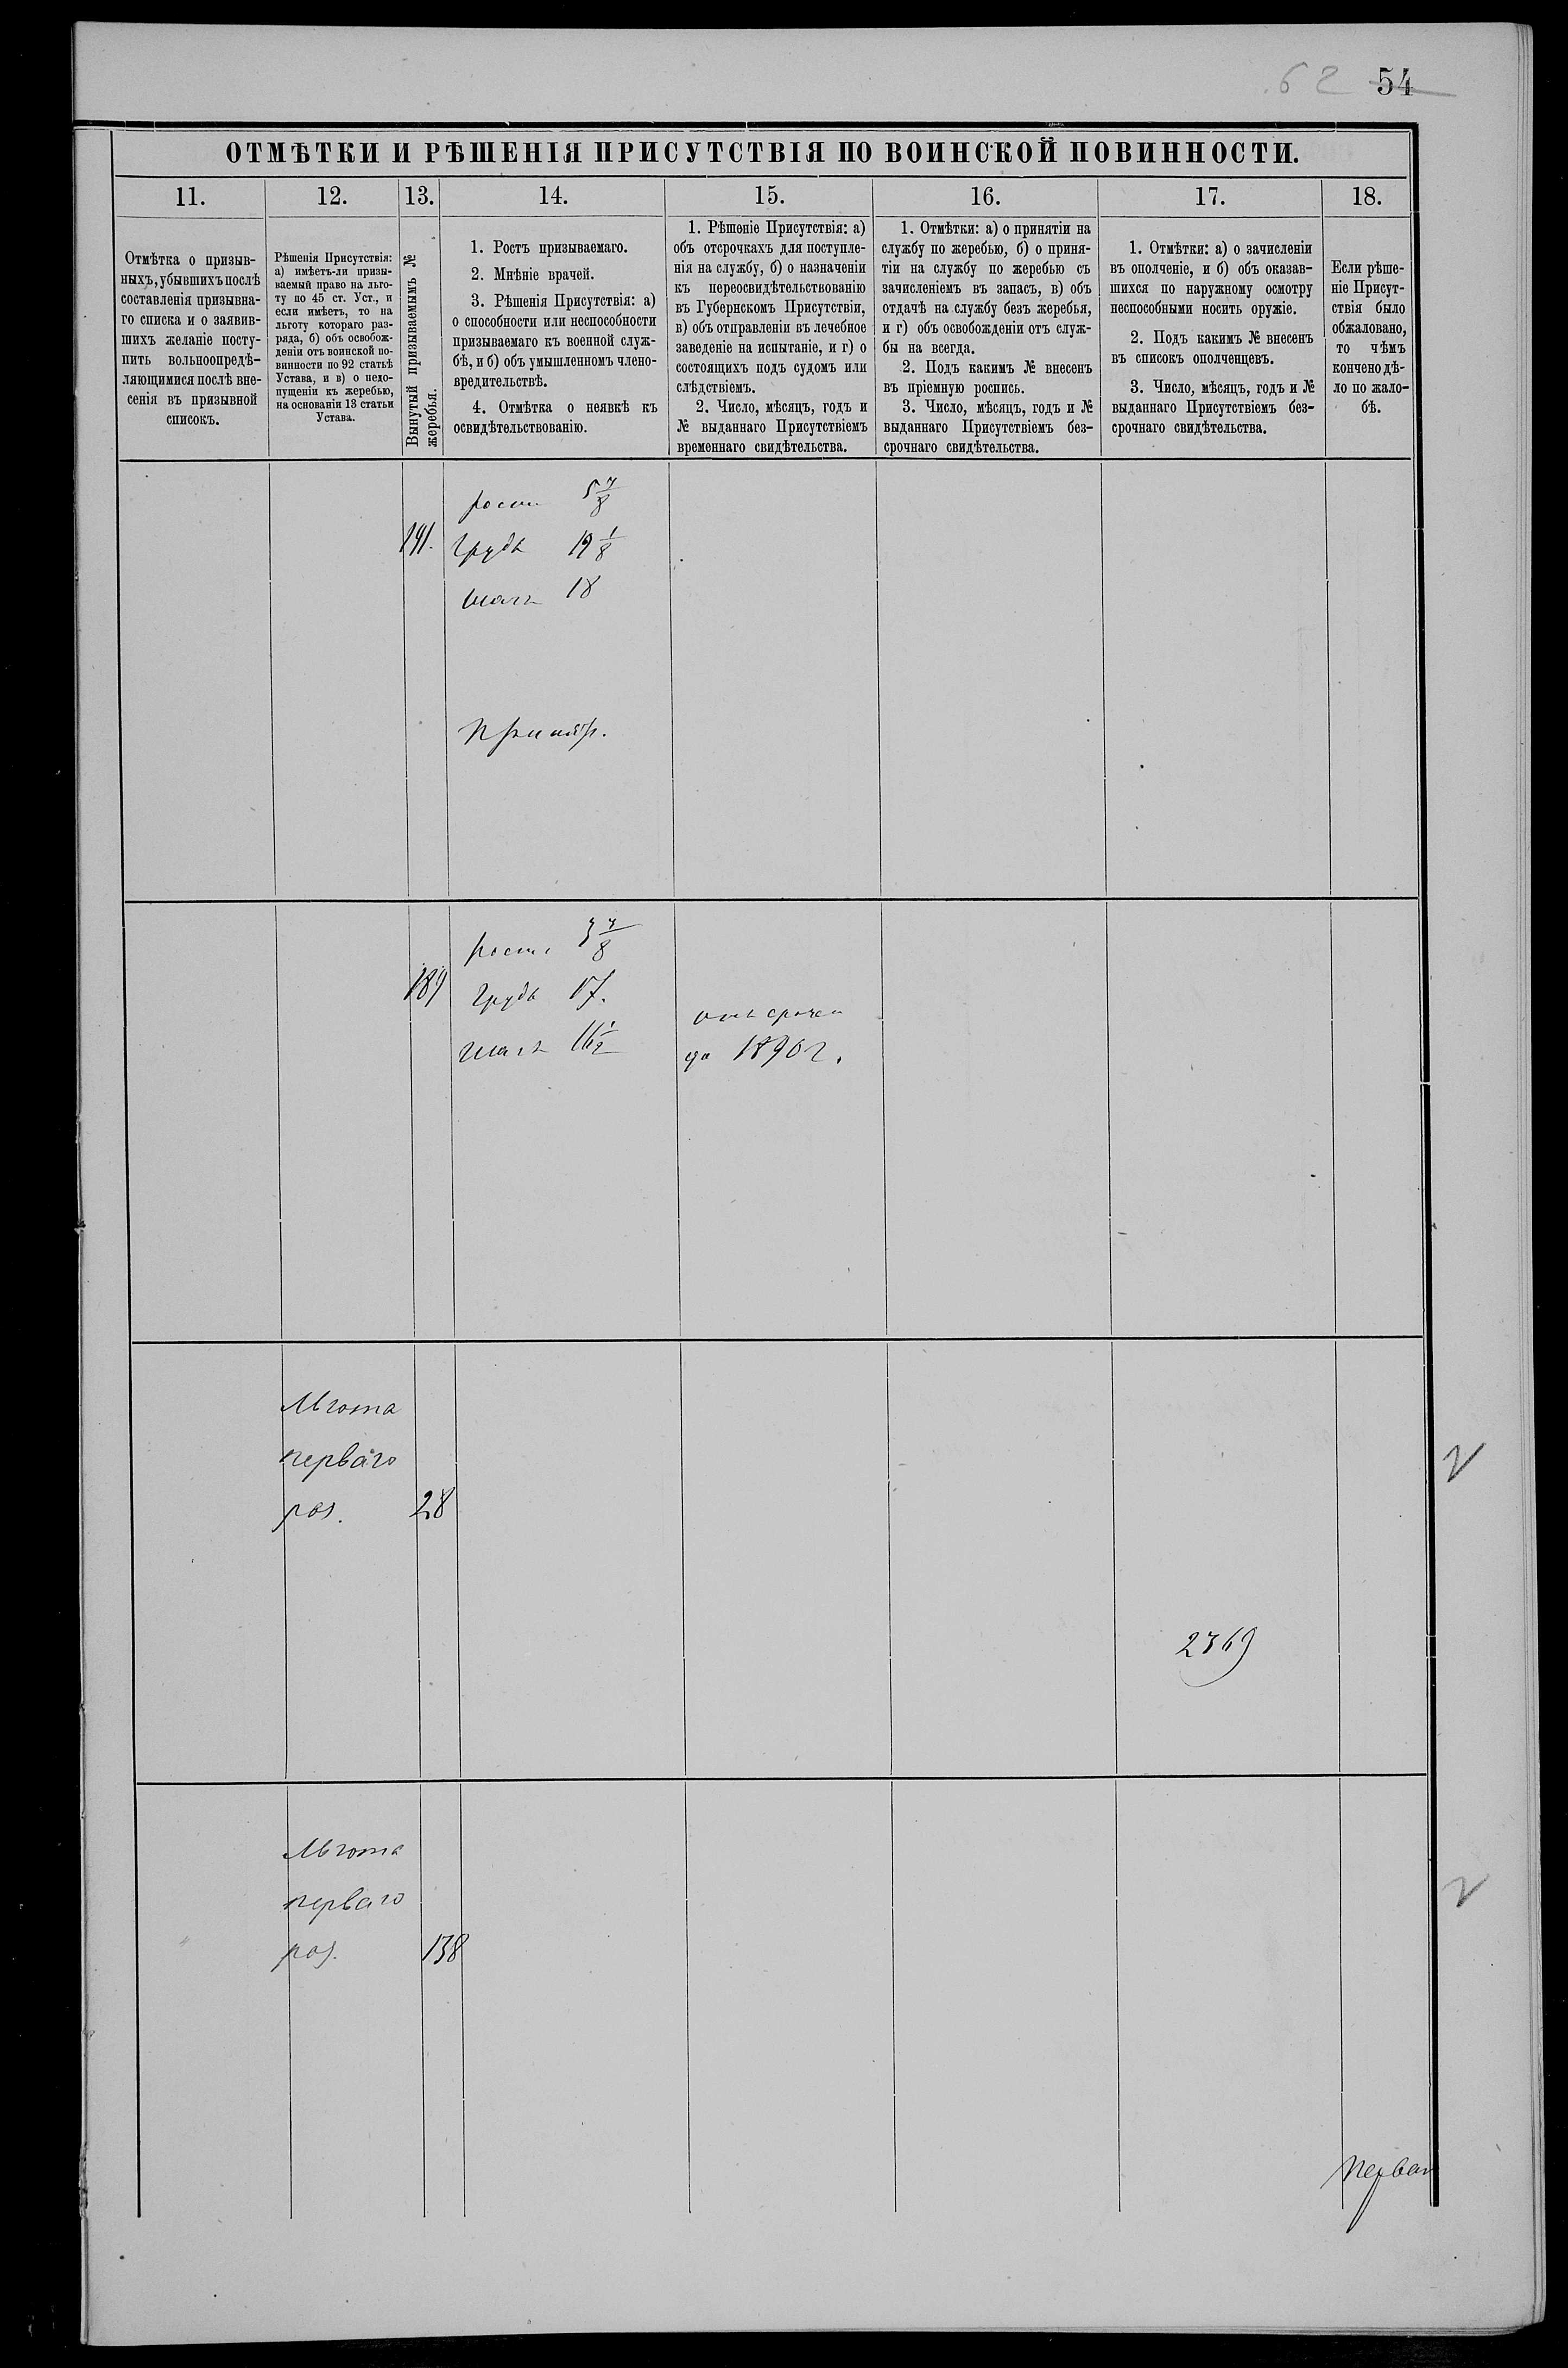 62 54
ОТМѢТКИ И РѢШЕНІЯ ПРИСУТСТВІЯ ПО ВОИНСКОЙ ПОВИННОСТИ.
11.
Отмѣтка о призыв-
ныхъ, убывшихъ послѣ
составленія призывна-
го списка и о заявив-
шихъ желаніе посту-
пить вольноопредѣ-
ляющимися послѣ вне-
сенія въ призывной
списокъ.
12.
Рѣшенія Присутствія:
а) имѣетъ-ли призы-
ваемый право на льго-
ту по 45 ст. Уст., и
если имѣетъ, то на
льготу котораго раз-
ряда, б) объ освобож-
деніи отъ воинской по-
винности по 92 статьѣ
Устава, и в) о недо-
пущеніи къ жеребью,
на основаніи 13 статьи
Устава.
13.
Вынутый призываемымъ №
жеребья.
14.
1. Ростъ призываемаго.
2. Мнѣніе врачей.
3. Рѣшенія Присутствія: а)
о способности или неспособности
призываемаго къ военной служ-
бѣ, и б) объ умышленномъ члено-
вредительствѣ.
4. Отмѣтка о неявкѣ къ
освидѣтельствованію.
15.
1. Рѣшеніе Присутствія: а)
объ отсрочкахъ для поступле-
нія на службу, б) о назначеніи
къ переосвидѣтельствованію
въ Губернскомъ Присутствіи,
в) объ отправленіи въ лечебное
заведеніе на испытаніе, и г) о
состоящихъ подъ судомъ или
слѣдствіемъ.
2. Число, мѣсяцъ, годъ и
№ выданнаго Присутствіемъ
временнаго свидѣтельства.
16.
1. Отмѣтки: а) о принятіи на
службу по жеребью, б) о приня-
тіи на службу по жеребью съ
зачисленіемъ въ запасъ, в) объ
отдачѣ на службу безъ жеребья,
и г) объ освобожденіи отъ служ-
бы на всегда.
2. Подъ какимъ № внесенъ
въ пріемную роспись.
3. Число, мѣсяцъ, годъ и №
выданнаго Присутствіемъ без-
срочнаго свидѣтельства.
17.
1. Отмѣтки: а) о зачисленіи
въ ополченіе, и б) объ оказав-
шихся по наружному осмотру
неспособными носить оружіе.
2. Подъ какимъ № внесенъ
въ списокъ ополченцевъ.
3. Число, мѣсяцъ, годъ и №
выданнаго Присутствіемъ без-
срочнаго свидѣтельства.
18.
Если рѣше-
ніе Присут-
ствія было
обжаловано,
то чѣмъ
кончено дѣ-
ло по жало-
бѣ.
ростъ 5 7/8
191. грудь 19 1/8
18
Принятъ.
ростъ 3 7/8
189 грудь 17.
16 1/2
отсрочка
до 1890 г.
Льгота
перваго
раз. 28
2369
Льгота
перваго
раз. 138